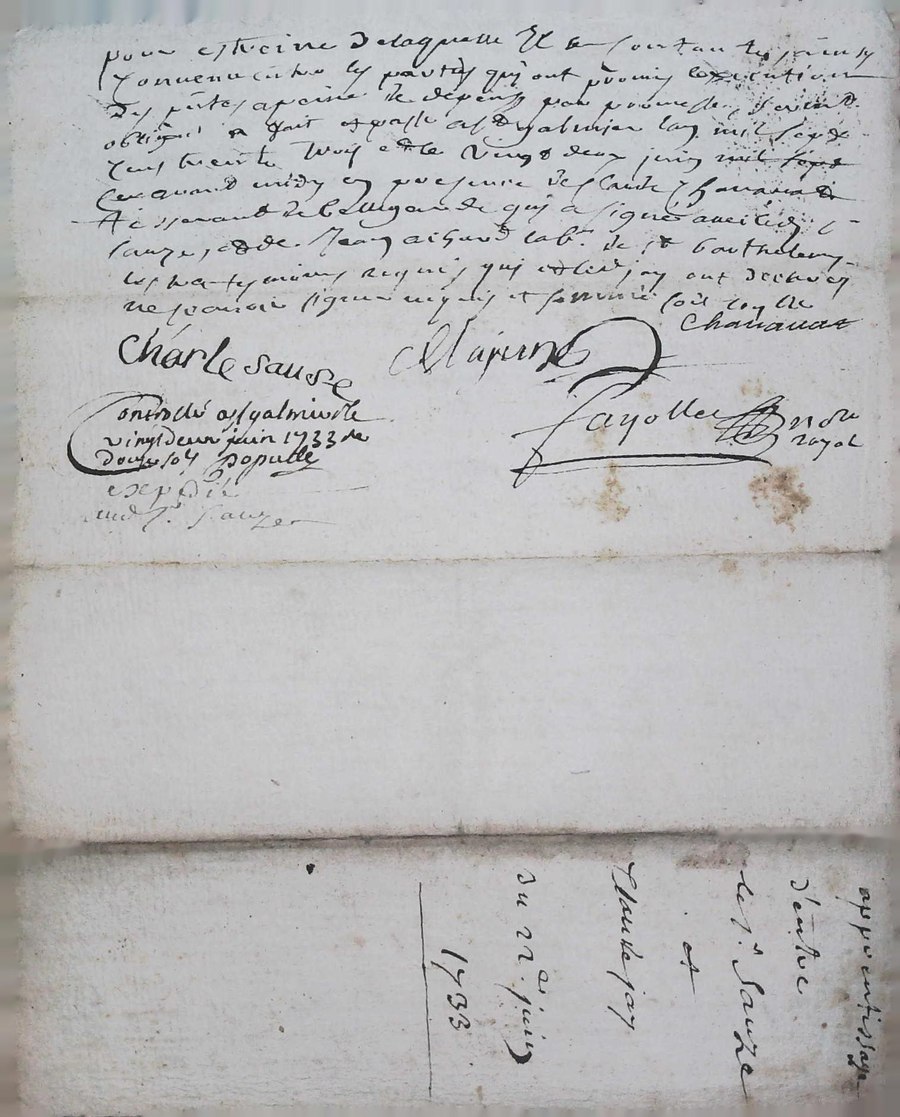 pour estreine de laquelle Il se
Convenu entre les parties qui ont promis lexecution
des ptes a peine de depens par promesse, serment
obliga fait et passé a St galmier lan mil sept
cens trente trois et le vingt deux juin mil sept
avant midy en presence de Claude Chanavat
Tisserand de bellegarde qui a signé avec led. Sr
Sauze, et de Jean labr. de St barthelemy
temoins requis qui et led jay ont declaré
ne scavoir signer enquis et sommé
Chanavat
Charle Sauze
fayolle nore
royal
Controllé a St galmier le
vingt deux juin 1733 Re
douze sols Populle
expedié
aud Sr. Sauze
apprentissage
d'entre
le Sr. Sauze
et
Claude jay
du 22e. juin
1733